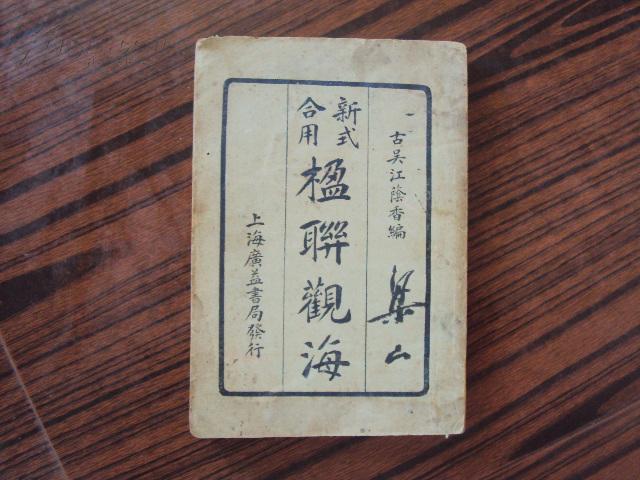 古吳江蔭香編
新式
合用
楹聯觀海
上海廣益書局發行